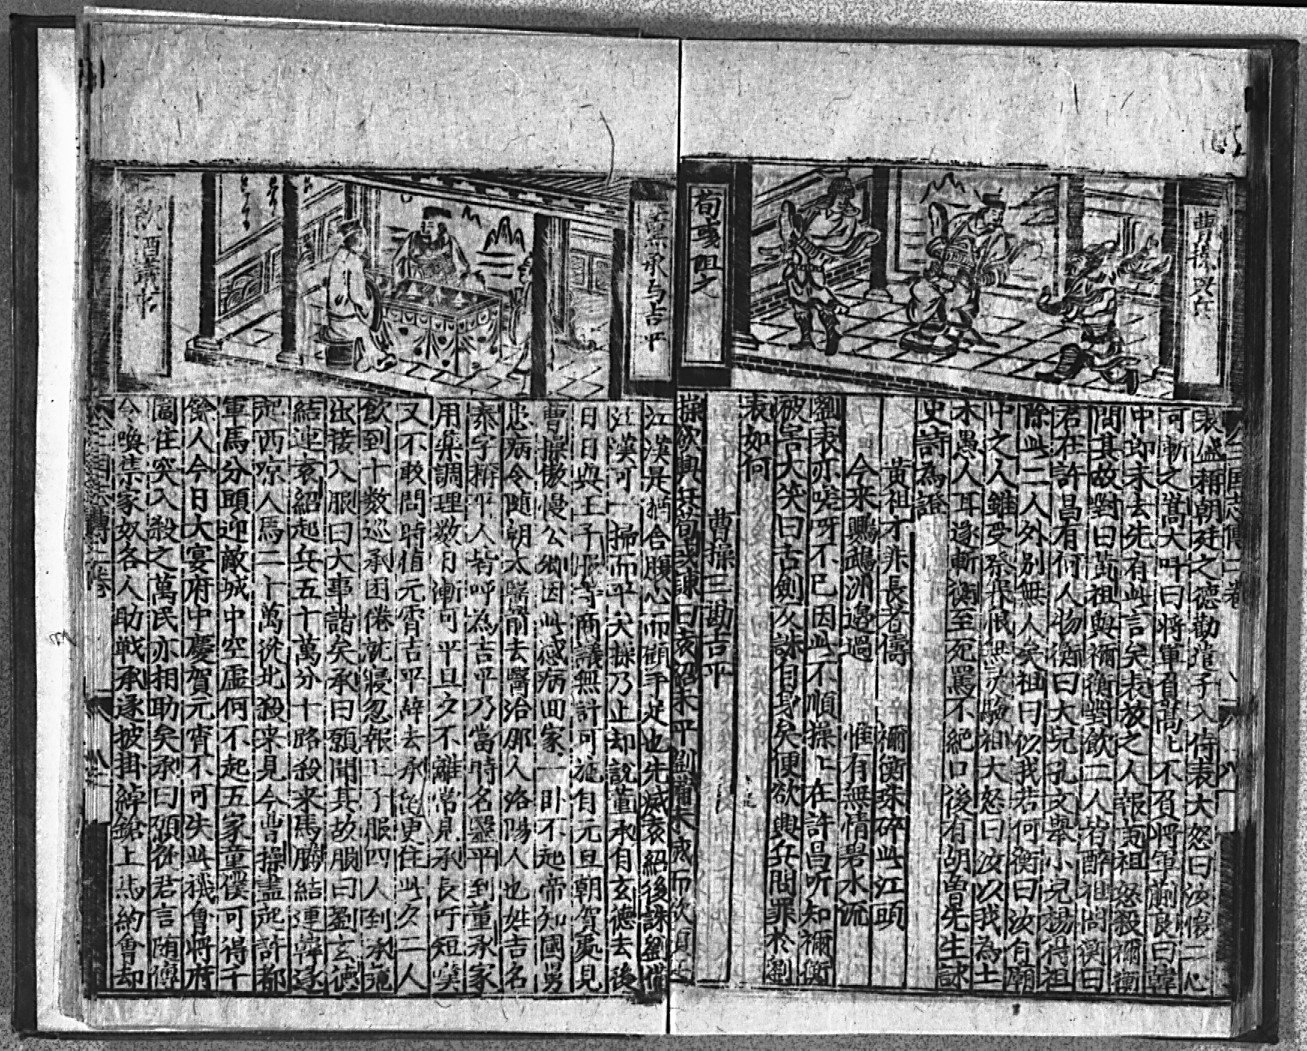 曹操興兵
荀彧阻之
袁盛稱朝廷之德勸遣子入侍表大怒曰汝懷二心
可斬之嵩大叫曰將軍負嵩嵩不負將軍蒯良曰韓
中郎未去先有此言矣表放之人報黃祖怒殺禰衡
問其故對曰黃祖與禰衡對飲二人皆醉祖問衡曰
君在許昌有何人物衡曰大兒孔文舉小兒楊得祖
除此二人外別無人矣祖曰似我若何衡曰汝有廟
中之人雖受祭祀恨無灵驗祖大怒曰汝以我為土
木愚人耳遂斬衡至死罵不絕口後有胡曾先生詠
史詩為證
黃祖才非長者儔 禰衡珠碎此江頭
今來鸚鵡洲邊過 惟有無情碧水流
劉表亦嗟呀不已因此不順操操在許昌听知禰衡
被害大笑曰古劍久誅自身矣便欲興兵問罪於劉
表如何
曹操三勘吉平
操欲興兵荀彧諫曰袁紹未平劉備未滅而欲
董承與吉平
飲酒
江漢是猶舍腹心而顧手足也先滅袁紹後誅劉備
江漢可一掃而平矣操乃止却說董承自玄德去後
日日與王子服等商議無計可施自元旦朝賀處見
曹操傲慢公卿因此感病回家一卧不起帝知國舅
患病令隨朝太醫前去醫治那人洛陽人也姓吉名
泰字稱平人皆呼為吉平乃當時名醫平到董承家
用藥調理数月漸可平旦夕不離常見承長吁短嘆
又不敢問時值元宵吉平辞去承留更住此久二人
飲到十数巡承困倦就寢忽報王子服四人到承
出接入服曰大事諧矣承曰願聞其故服曰劉玄德
結連袁紹起兵五十萬分十路殺來馬騰結連韓遂
起西凉人馬二十萬從北殺來見今曹操盡起許都
軍馬分頭迎敵城中空虛何不起五家童僕可得千
餘人今日大宴府中慶賀元宵不可失此機會將府
圍住突入殺之萬民亦相助矣承曰願從君言隨傳
令喚集家奴各人助戰承遂披掛綽鎗上馬約會却
三國志傳二卷